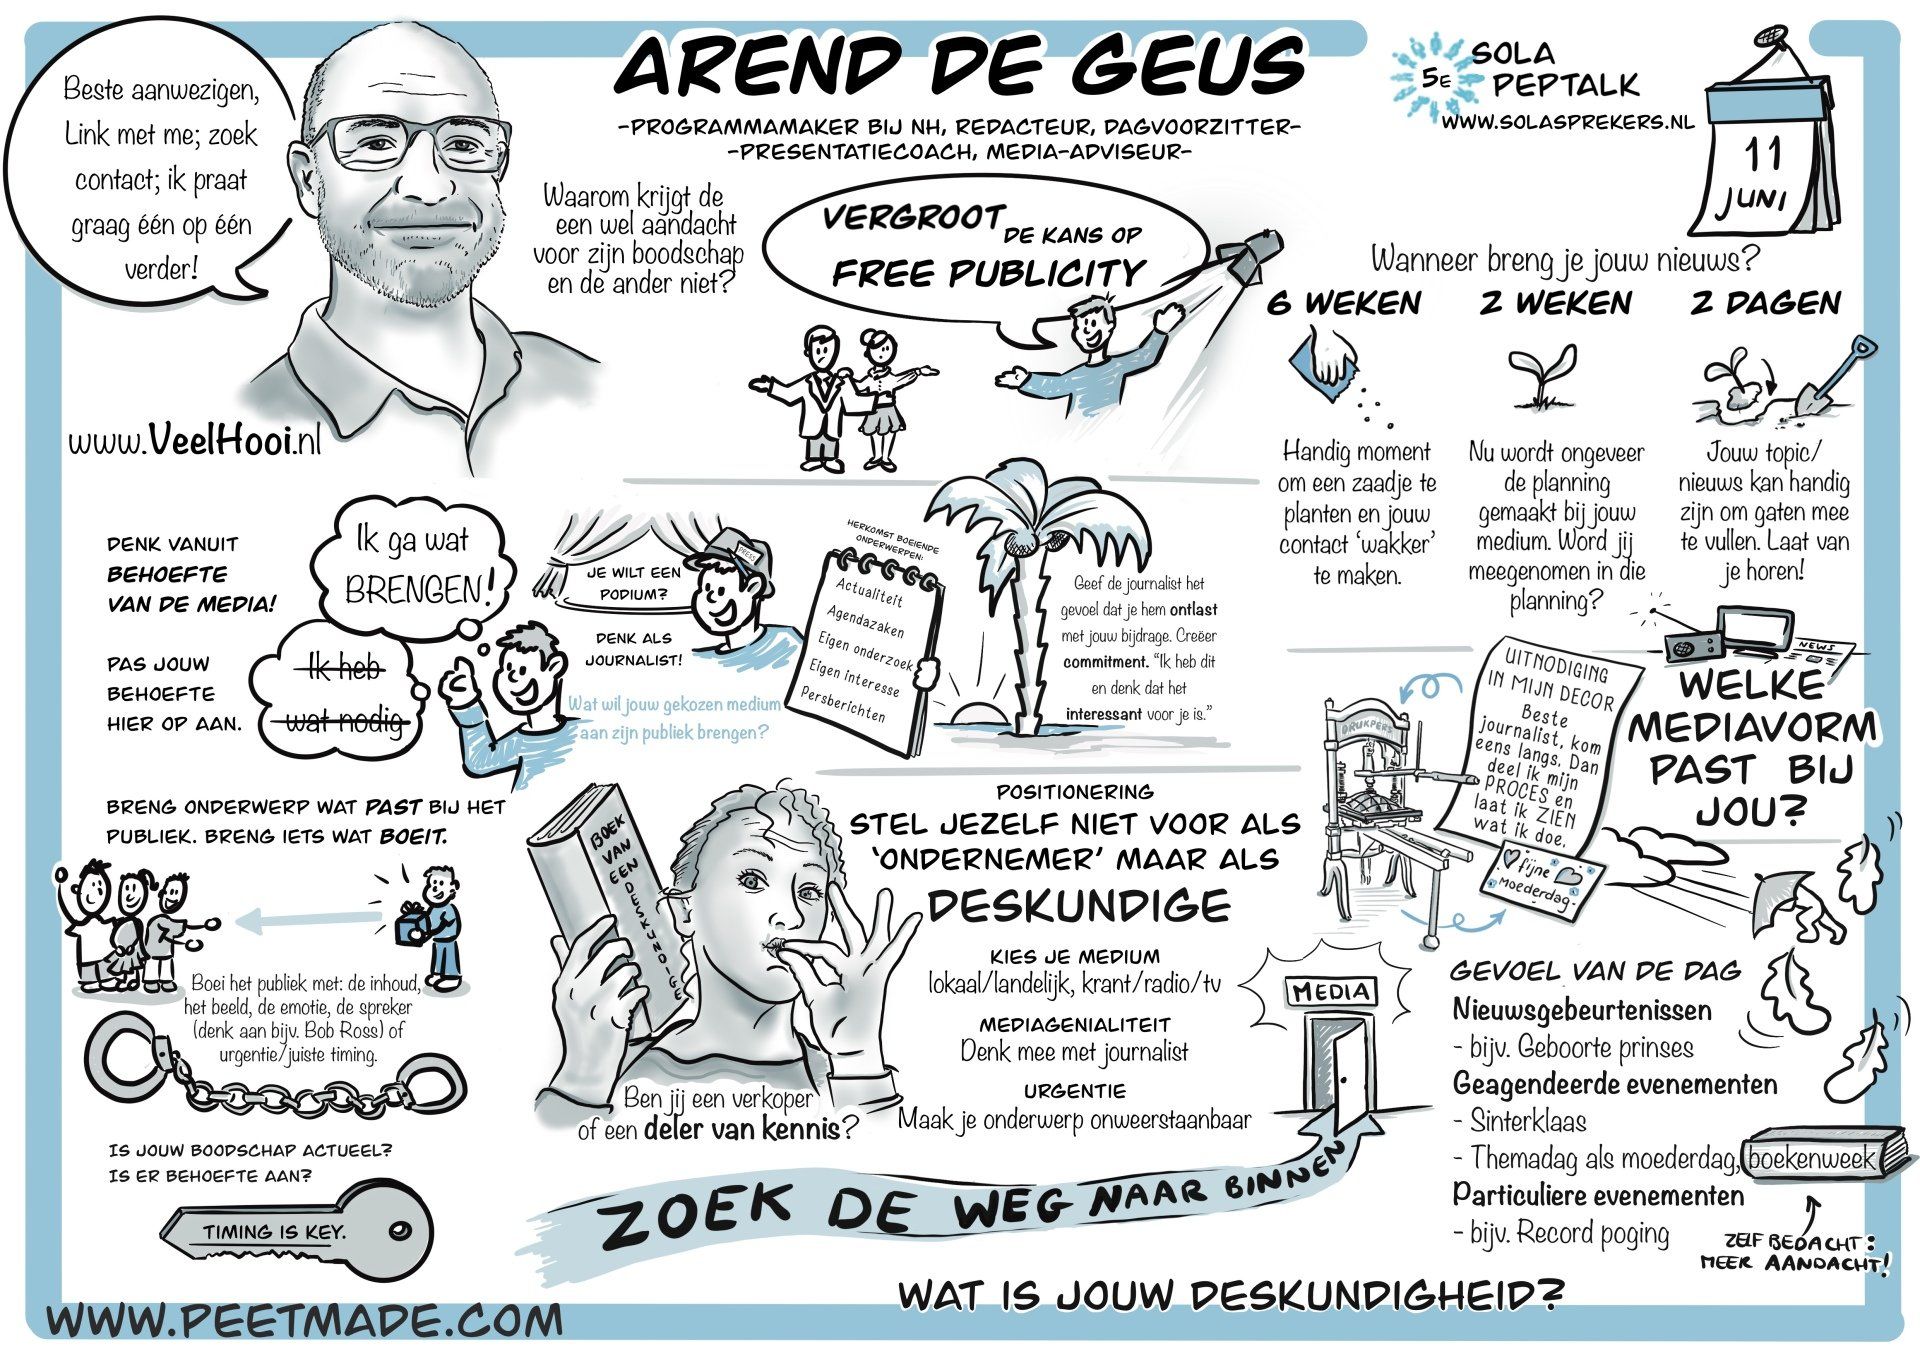 Beste aanwezigen,
Link met me; zoek
contact; ik praat
graag één op één
verder!
www.VeelHooi.nl
AREND DE GEUS
-PROGRAMMAMAKER BIJ NH, REDACTEUR, DAGVOORZITTER-
-PRESENTATIECOACH, MEDIA-ADVISEUR-
5E SOLA
PEPTALK
WWW.SOLASPREKERS.NL
11
JUNI
Waarom krijgt de
een wel aandacht
voor zijn boodschap
en de ander niet?
VERGROOT
DE KANS OP
FREE PUBLICITY
Wanneer breng je jouw nieuws?
6 WEKEN
Handig moment
om een zaadje te
planten en jouw
contact 'wakker'
te maken.
2 WEKEN
Nu wordt ongeveer
de planning
gemaakt bij jouw
medium. Word jij
meegenomen in die
planning?
2 DAGEN
Jouw topic/
nieuws kan handig
zijn om gaten mee
te vullen. Laat van
je horen!
DENK VANUIT
BEHOEFTE
VAN DE MEDIA!
PAS JOUW
BEHOEFTE
HIER OP AAN.
Ik ga wat
BRENGEN!
Ik heb
wat nodig
JE WILT EEN
PODIUM?
PRESS
DENK ALS
JOURNALIST!
Wat wil jouw gekozen medium
aan zijn publiek brengen?
HERKOMST BOEIENDE
ONDERWERPEN:
Actualiteit
Agendazaken
Eigen onderzoek
Eigen interesse
Persberichten
Geef de journalist het
gevoel dat je hem ontlast
met jouw bijdrage. Creëer
commitment. "Ik heb dit
en denk dat het
interessant voor je is."
NEWS
WELKE
MEDIAVORM
PAST BIJ
JOU?
DRUKPERS
UITNODIGING
IN MIJN DECOR
Beste
journalist, kom
eens langs. Dan
deel ik mijn
PROCES en
laat ik ZIEN
wat ik doe.
fijne
Moederdag
BRENG ONDERWERP WAT PAST BIJ HET
PUBLIEK. BRENG IETS WAT BOEIT.
Boei het publiek met: de inhoud,
het beeld, de emotie, de spreker
(denk aan bijv. Bob Ross) of
urgentie/juiste timing.
IS JOUW BOODSCHAP ACTUEEL?
IS ER BEHOEFTE AAN?
TIMING IS KEY.
BOEK
VAN
EEN
DESKUNDIGE
Ben jij een verkoper
of een deler van kennis?
POSITIONERING
STEL JEZELF NIET VOOR ALS
'ONDERNEMER' MAAR ALS
DESKUNDIGE
KIES JE MEDIUM
lokaal/landelijk, krant/radio/tv
MEDIAGENIALITEIT
Denk mee met journalist
URGENTIE
Maak je onderwerp onweerstaanbaar
MEDIA
ZOEK DE WEG NAAR BINNEN
GEVOEL VAN DE DAG
Nieuwsgebeurtenissen
- bijv. Geboorte prinses
Geagendeerde evenementen
- Sinterklaas
- Themadag als moederdag, boekenweek
Particuliere evenementen
- bijv. Record poging
ZELF BEDACHT:
MEER AANDACHT!
WAT IS JOUW DESKUNDIGHEID?
WWW.PEETMADE.COM